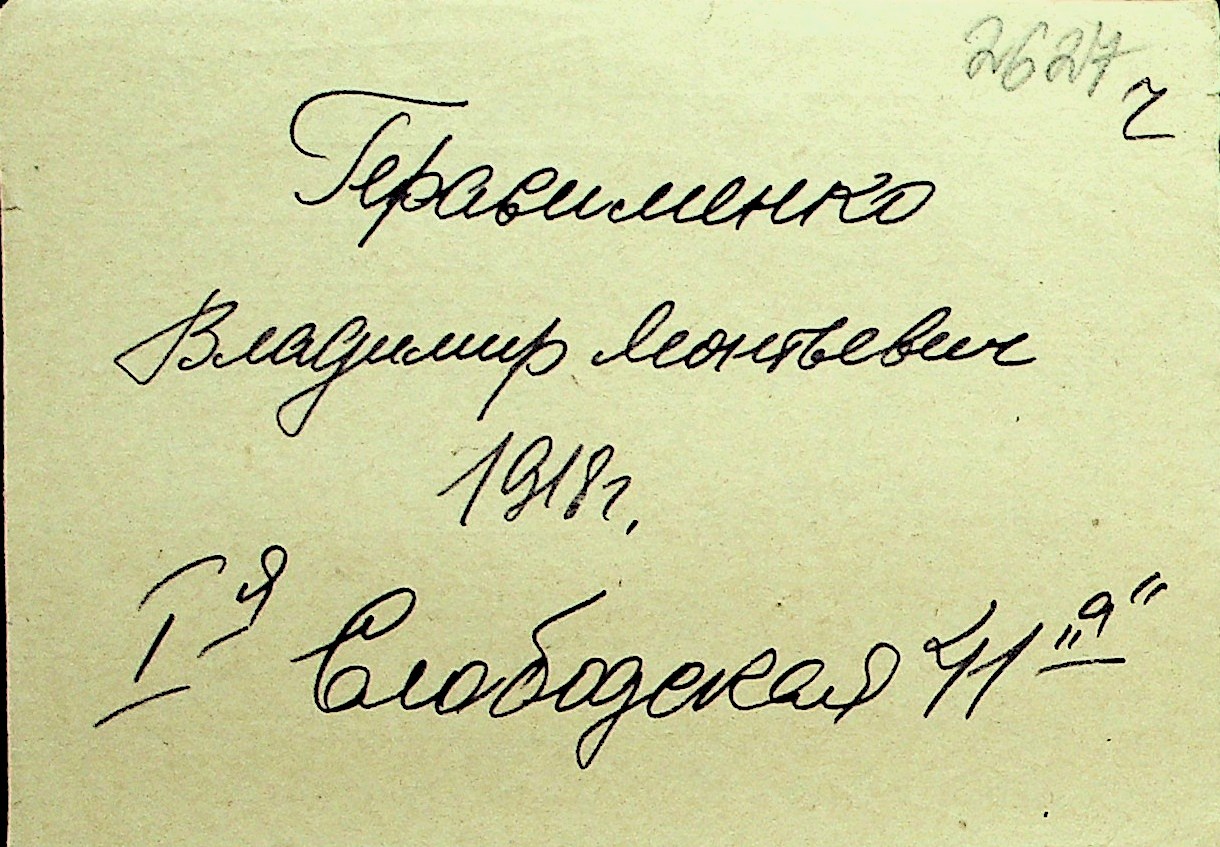 2627
Герасименко
Владимир Леонтьевич
1918г.
I я Слободская 41 "а"